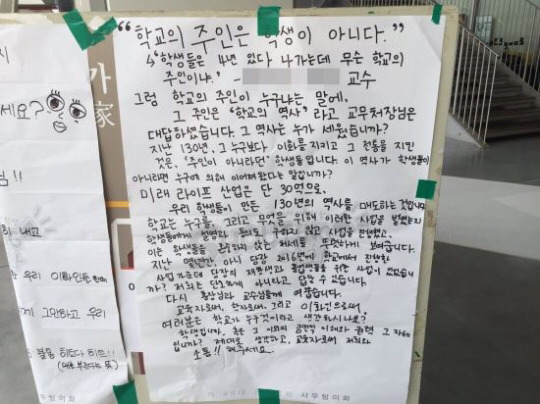 "학교의 주인은 학생이 아니다."
"학생들은 4년 있다 나가는데 무슨 학교의
주인이냐." - 교수
그럼 학교의 주인이 누구냐는 말에.
그 주인은 "학교의 역사" 라고 교무처장님은
대답하셨습니다. 그 역사는 누가 세웠습니까?
지난 130년. 그 누구보다 이화를 지키고 그 전통을 지킨
것은, '주인이 아니라던' 학생들입니다. 이 역사가 학생들이
아니라면 누구에 의해 이어져왔다는 말입니까?
미래 라이프 산업은 단 30억으로.
우리 학생들이 만든 130년의 역사를 매도하는 것입니다
학교는 누구를, 그리고 무엇을 위해 이러한 사업을 벌였는지
학생들에게 설명과 동의도 구하지 않고 사업을 진행했고,
이는 학생들을 존중하지 않는 처사를 뚜렷하게 보여줍니다.
지난 역사가 아닌 당장 2016년에 학교에서 진행한
사업 가운데 당장의 재학생과 졸업생들을 위한 사업이 있었습니
까? 저희는 단호하게 아니라고 답할 수 있습니다.
다시 총장님과 교수님들께 여쭙습니다.
교육자로써, 학자로써, 그리고 이화인으로써,
여러분은 학교가 누구 것이라고 생각하시나요?
학생입니까, 혹은 그 이외의 금전적 이해와 권력 그 자체
입니까? 제대로 생각하고, 교육자로써 저희와
소통!! 해주세요..
세요?
님!!
하 내고
우리 이화인들
제 그만하고 우리
불통 히트다 히트!!
家
사무원이화